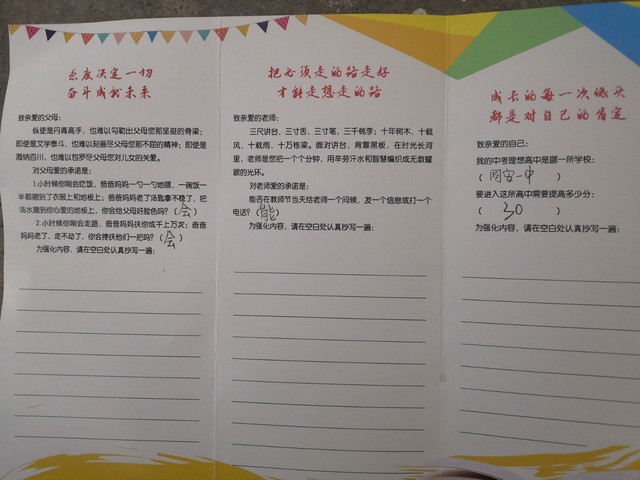 态度决定一切
奋斗成就未来
致亲爱的父母:
纵使是丹青高手,也难以勾勒出父母您那坚挺的脊梁;
即使是文学泰斗,也难以刻画尽父母您那不屈的精神;即使是
海纳百川,也难以包罗尽父母您对儿女的关爱。
对父母爱的承诺是:
1.小时候你刚会吃饭,爸爸妈妈一勺一勺地喂,一碗饭一
半都磨到了衣服上和地板上;爸爸妈妈老了汤匙拿不稳了,把
汤水磨到你心爱的地板上,你会给父母好脸色吗?(会)
2.小时候你刚会走路,爸爸妈妈扶你成千上万次;爸爸
妈妈老了,走不动了,你会搀扶他们一把吗?(会)
为强化内容,请在空白处认真抄写一遍:
把必须走的路走好
才能走想走的路
致亲爱的老师:
三尺讲台,三寸舌,三寸笔,三千桃李;十年树木,十载
风,十载雨,十万栋梁。面对讲台,背靠黑板,在时光长河
里,老师是您把一个个十分,用辛劳汗水和智慧编织成无数耀
眼的光环。
对老师爱的承诺是:
能否在教师节当天给老师一个问候,发一个信息或打一个
电话?(能)
为强化内容,请在空白处认真抄写一遍:
成长的每一次低头
都是对自己的肯定
致亲爱的自己:
我的中考理想高中是哪一所学校:
(同安一中)
要进入这所高中需要提高多少分:
(30)
为强化内容,请在空白处认真抄写一遍: